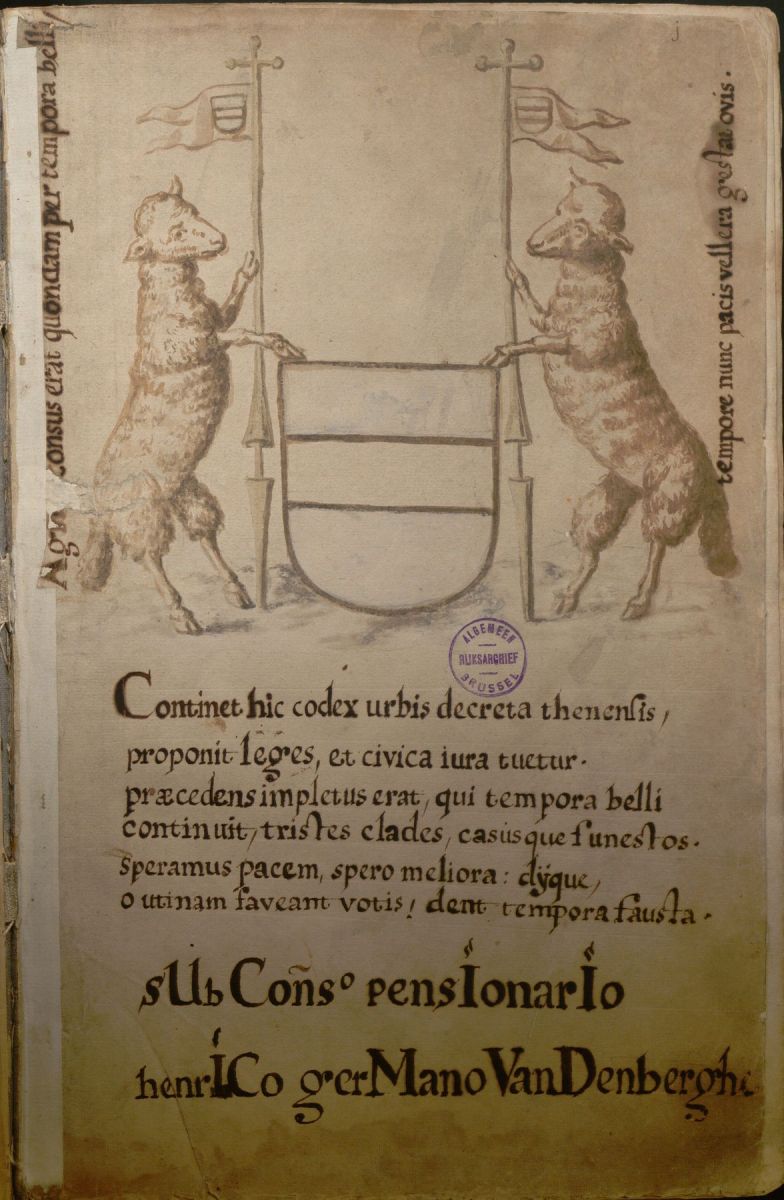 j
consus erat quondam per tempora belli
tempore nunc pacis vellera gestat ovis.
ALGEMEEN
RIJKSARCHIEF
BRUSSEL
Continet hic codex urbis decreta thenensis,
proponit leges, et civica iura tuetur.
præcedens impletus erat, qui tempora belli
continuit, tristes clades, casusque funestos.
speramus pacem, spero meliora: dÿque,
o utinam faveant votis! dent tempora fausta.
sUb Coñs° pensIonarIo
henrICo gerMano VanDenberghe